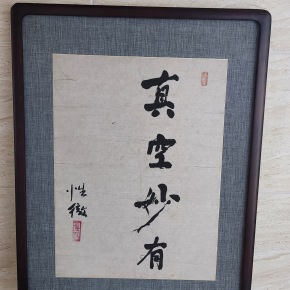 真空妙有
性徵